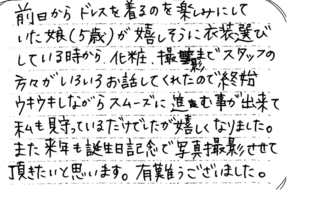 前日からドレスを着るのを楽しみにして
いた娘(5歳)が嬉しそうに衣装選び
している時から、化粧、撮影までスタッフの
方々がいろいろお話してくれたので終始
ウキウキしながらスムーズに進む事が出来て
私も見守っているだけでしたが嬉しくなりました。
また来年も誕生日記念で写真撮影させて
頂きたいと思います。有難うございました。